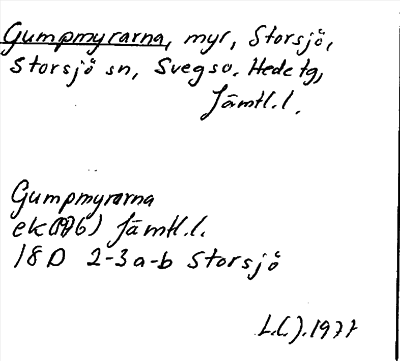 Gumpmyrarna, myr, Storsjö,
Storsjö sn, Svegs o. Hede tg,
Jämtl. l.
Gumpmyrarna
ek (1976) Jämtl. l.
18 D 2-3 a-b Storsjö
1977